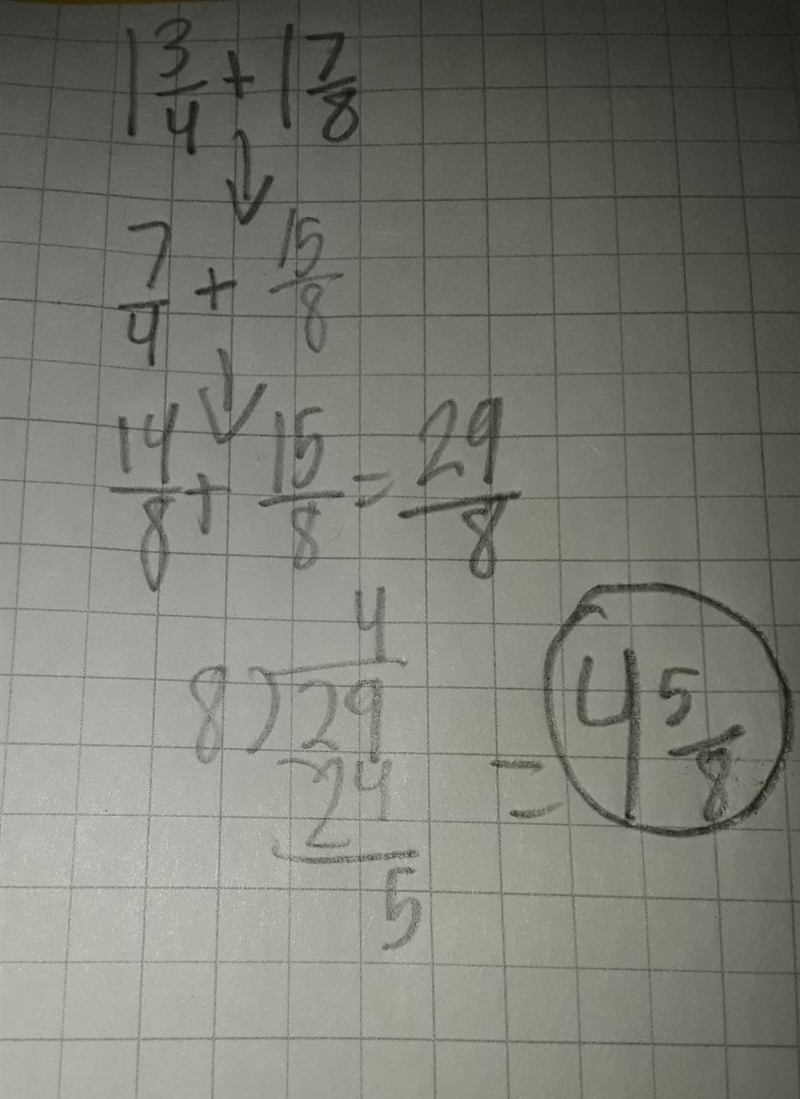 1 3/4 + 1 7/8
↓
7/4 + 15/8
↓
14/8 + 15/8 = 29/8
4
8)29
24
5
= 4 5/8